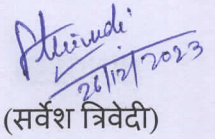 26/12/2023
(सर्वेश त्रिवेदी)